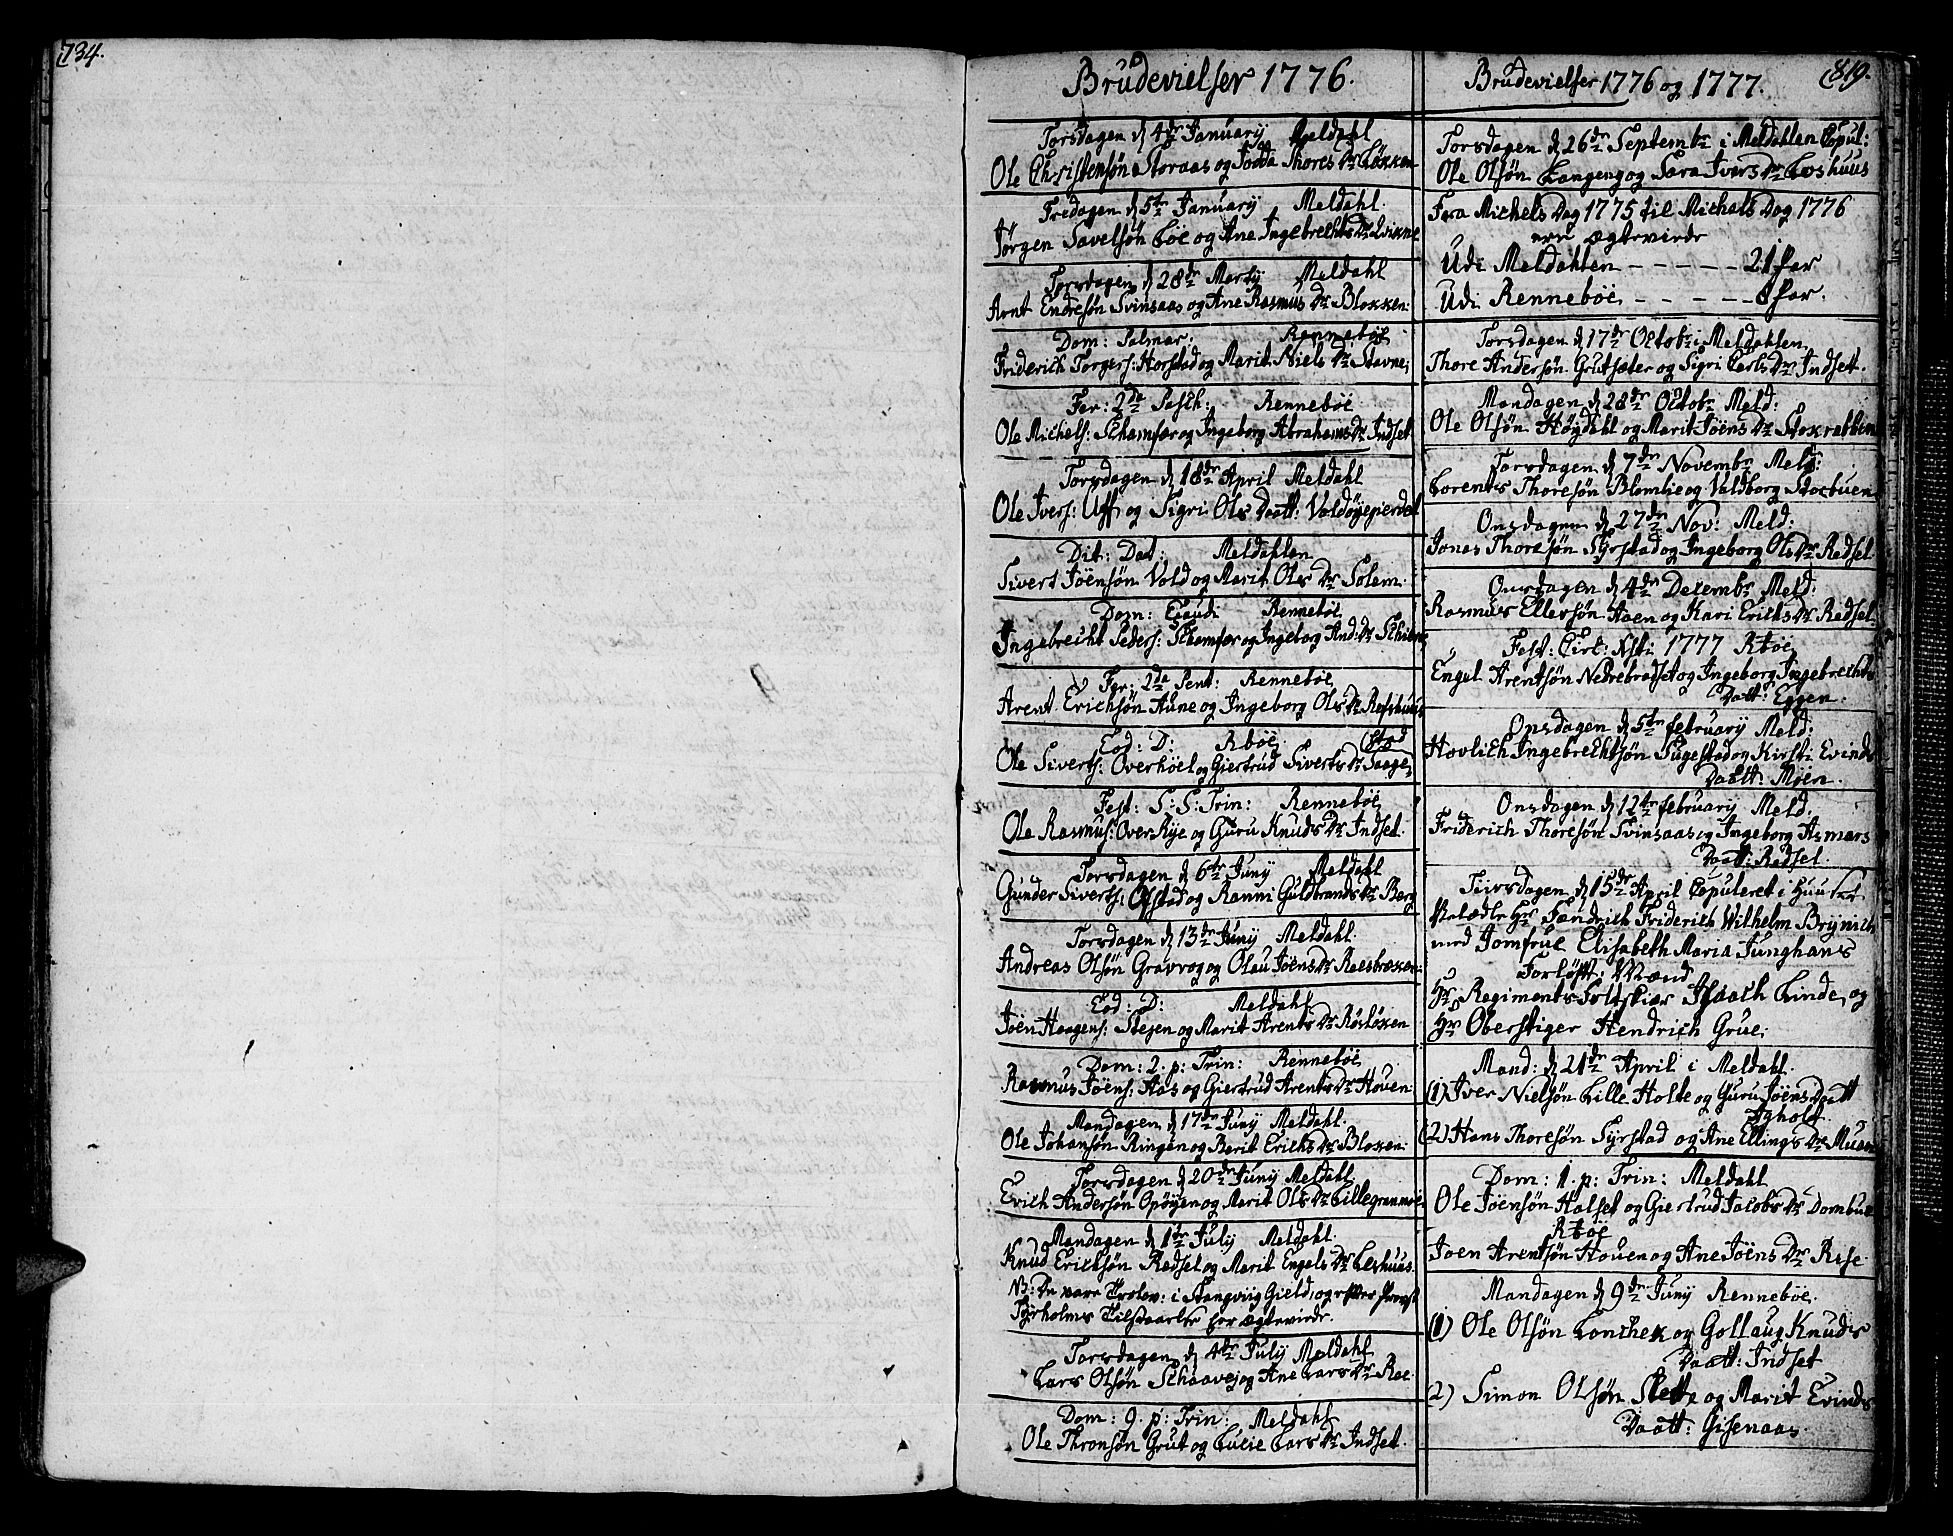 734.
Brudevielser 1776.
Torsdagen d 4de January Meldahl
Ole Christensøn Storaas og Jodda Thores Dr Løkken
Fredagen d 5te January Meldahl.
Jørgen Pavelsøn Løe og Ane Ingebrechts Dr Qvixne
Torsdagen d 28de Marty Meldahl
Arnt Endresøn Svinsaas og Ane Rasmus Dr Bloxken.
Dom: Palmar: Renneboe
Friderich Torgers: Horstad og Marit Niels Dr Stavne,
Fer: 2da Pasch: Renneboe
Ole Michels: Skamfær og Ingeborg Abrahams Dr Indset
Torsdagen d 18de April Meldahl
Ole Ivers: Uff og Sigri Ols Daatt: Valdøyepiendel
Dit: Dat: Meldahlen
Sivert Joensøn Vold og Marit Ols Dr Solem.
Dom: Exaudi Renneboe
Ingebrecht Peders: Skamfær og Ingeborg And: Dr
Fer: 2da Pent: Renneboe
Arent Erichsøn Aune og Ingeborg Ols Dr Refshuus
Eod: D: Rboe (stad
Ole Siverts: Overhoel og Giertrud Siverts Dr Saage
Fest: S: S: Trin: Renneboe
Ole Rasmus: Over Rye og Guru Knuds Dr Indset.
Torsdagen d 6te Juny Meldahl
Gunder Siverts: Ofstad og Ranni Guldbrands Dr Berg
Torsdagen d 13de Juny Meldahl.
Andreas Olsøn Gravrog og Olau Joens Dr
Eod: D: Meldahl
Joen Haagens: Stejen og Marit Arents Dr Røsløxen
Dom: 2. p: Trin: Renneboe
Rasmus Joens: Aas og Giertrud Arents Dr Houen.
Mandagen d 17de Juny Meldahl.
Ole Johansøn Ringen og Berit Erichs Dr Bloxen.
Torsdagen d 20de Juny Meldahl
Erich Andersøn Opøyen og Marit Ols Dr Lillegranmoe
Mandagen d 1te July Meldahl.
Knud Erichsøn Redsel og Marit Engels Dr Leshuus.
NB: De vare Trolov: i Stangviig Gield, og efter Provst
Tyrholms Tilstaaelse her ægteviede.
Torsdagen d 4de July Meldahl
Lars Olsøn Schaavej og Ane Lars Dr Roe
Dom: 9. p: Trin: Meldahl
Ole Thronsøn Grut og Lucie Lars Dr Indset.
Brudevielser 1776 og 1777.
(819.
Torsdagen d 26de Septembr i Meldahlen Copul:
Ole Olsøn Langeng og Sara Ivers Dr Leshuus
Fra Michels Dag 1775 til Michals Dag 1776
ere ægteviede
Udi Meldahlen - - - - - 21 Par
Udi Renneboe - - - - - 8 Par.
Torsdagen d 17de Octobr i Meldahlen
Thore Andersøn Grutsæter og Sigri Carls Dr Indset.
Mandagen d 28de Octobr Meld:
Ole Olsøn Høydahl og Marit Joens Dr
Torsdagen d 7de Novembr Meld:
Lorents Thoresøn Blomlie og Valdborg Stocbuen
Onsdagen d 27de Nov: Meld:
Jonas Thoresøn Syrstad og Ingeborg Ols Dr Redsel
Onsdagen d 4de Decembr Meld:
Rasmus Ellersøn Hoen og Kari Erichs Dr Redsel
Fest: Circ: Xsti 1777 Rboe
Engel Arentsøn Nedrebradset og Ingeborg Ingebrechts
Daatt: Eggen.
Onsdagen d 5te february Meld:
Hovlich Ingebrechtsøn Sugestad og Kirsti Evinds
Daatt: Moen.
Onsdagen d 12te february Meld.
Friderich Thoresøn Svinsaas og Ingeborg Asmars
Daatt: Redsel.
Tiirsdagen d 15de April Copuleret i Huuset
Velædle Hr Fændrich Friderich Wilhelm Brynich
med Jomfrue Elisabeth Maria Junghans
Forløft: Mænd
Hr Regiments Feltskiær Isaach Linde, og
Hr Oberstiger Hendrich Grue.
Mand: d 21de April i Meldahl.
(1) Iver Nielsøn Lille Holte og Guru Joens Daatt
Aghold
(2) Hans Thoresøn Syrstad og Ane Ellings Dr Muan
Dom: 1. p: Trin: Meldahl
Ole Joensøn Halset og Giertrud Jacobs Dr Dombue
Rboe
Joen Arentsøn Houen og Ane Joens Dr Rise
Mandagen d 9de Juny Renneboe.
(1) Ole Olsøn Lonchek og Gollaug Knuds
Daatt: Indset
(2) Simon Olsøn Slette og Marit Evinds
Daatt: Gisenaas